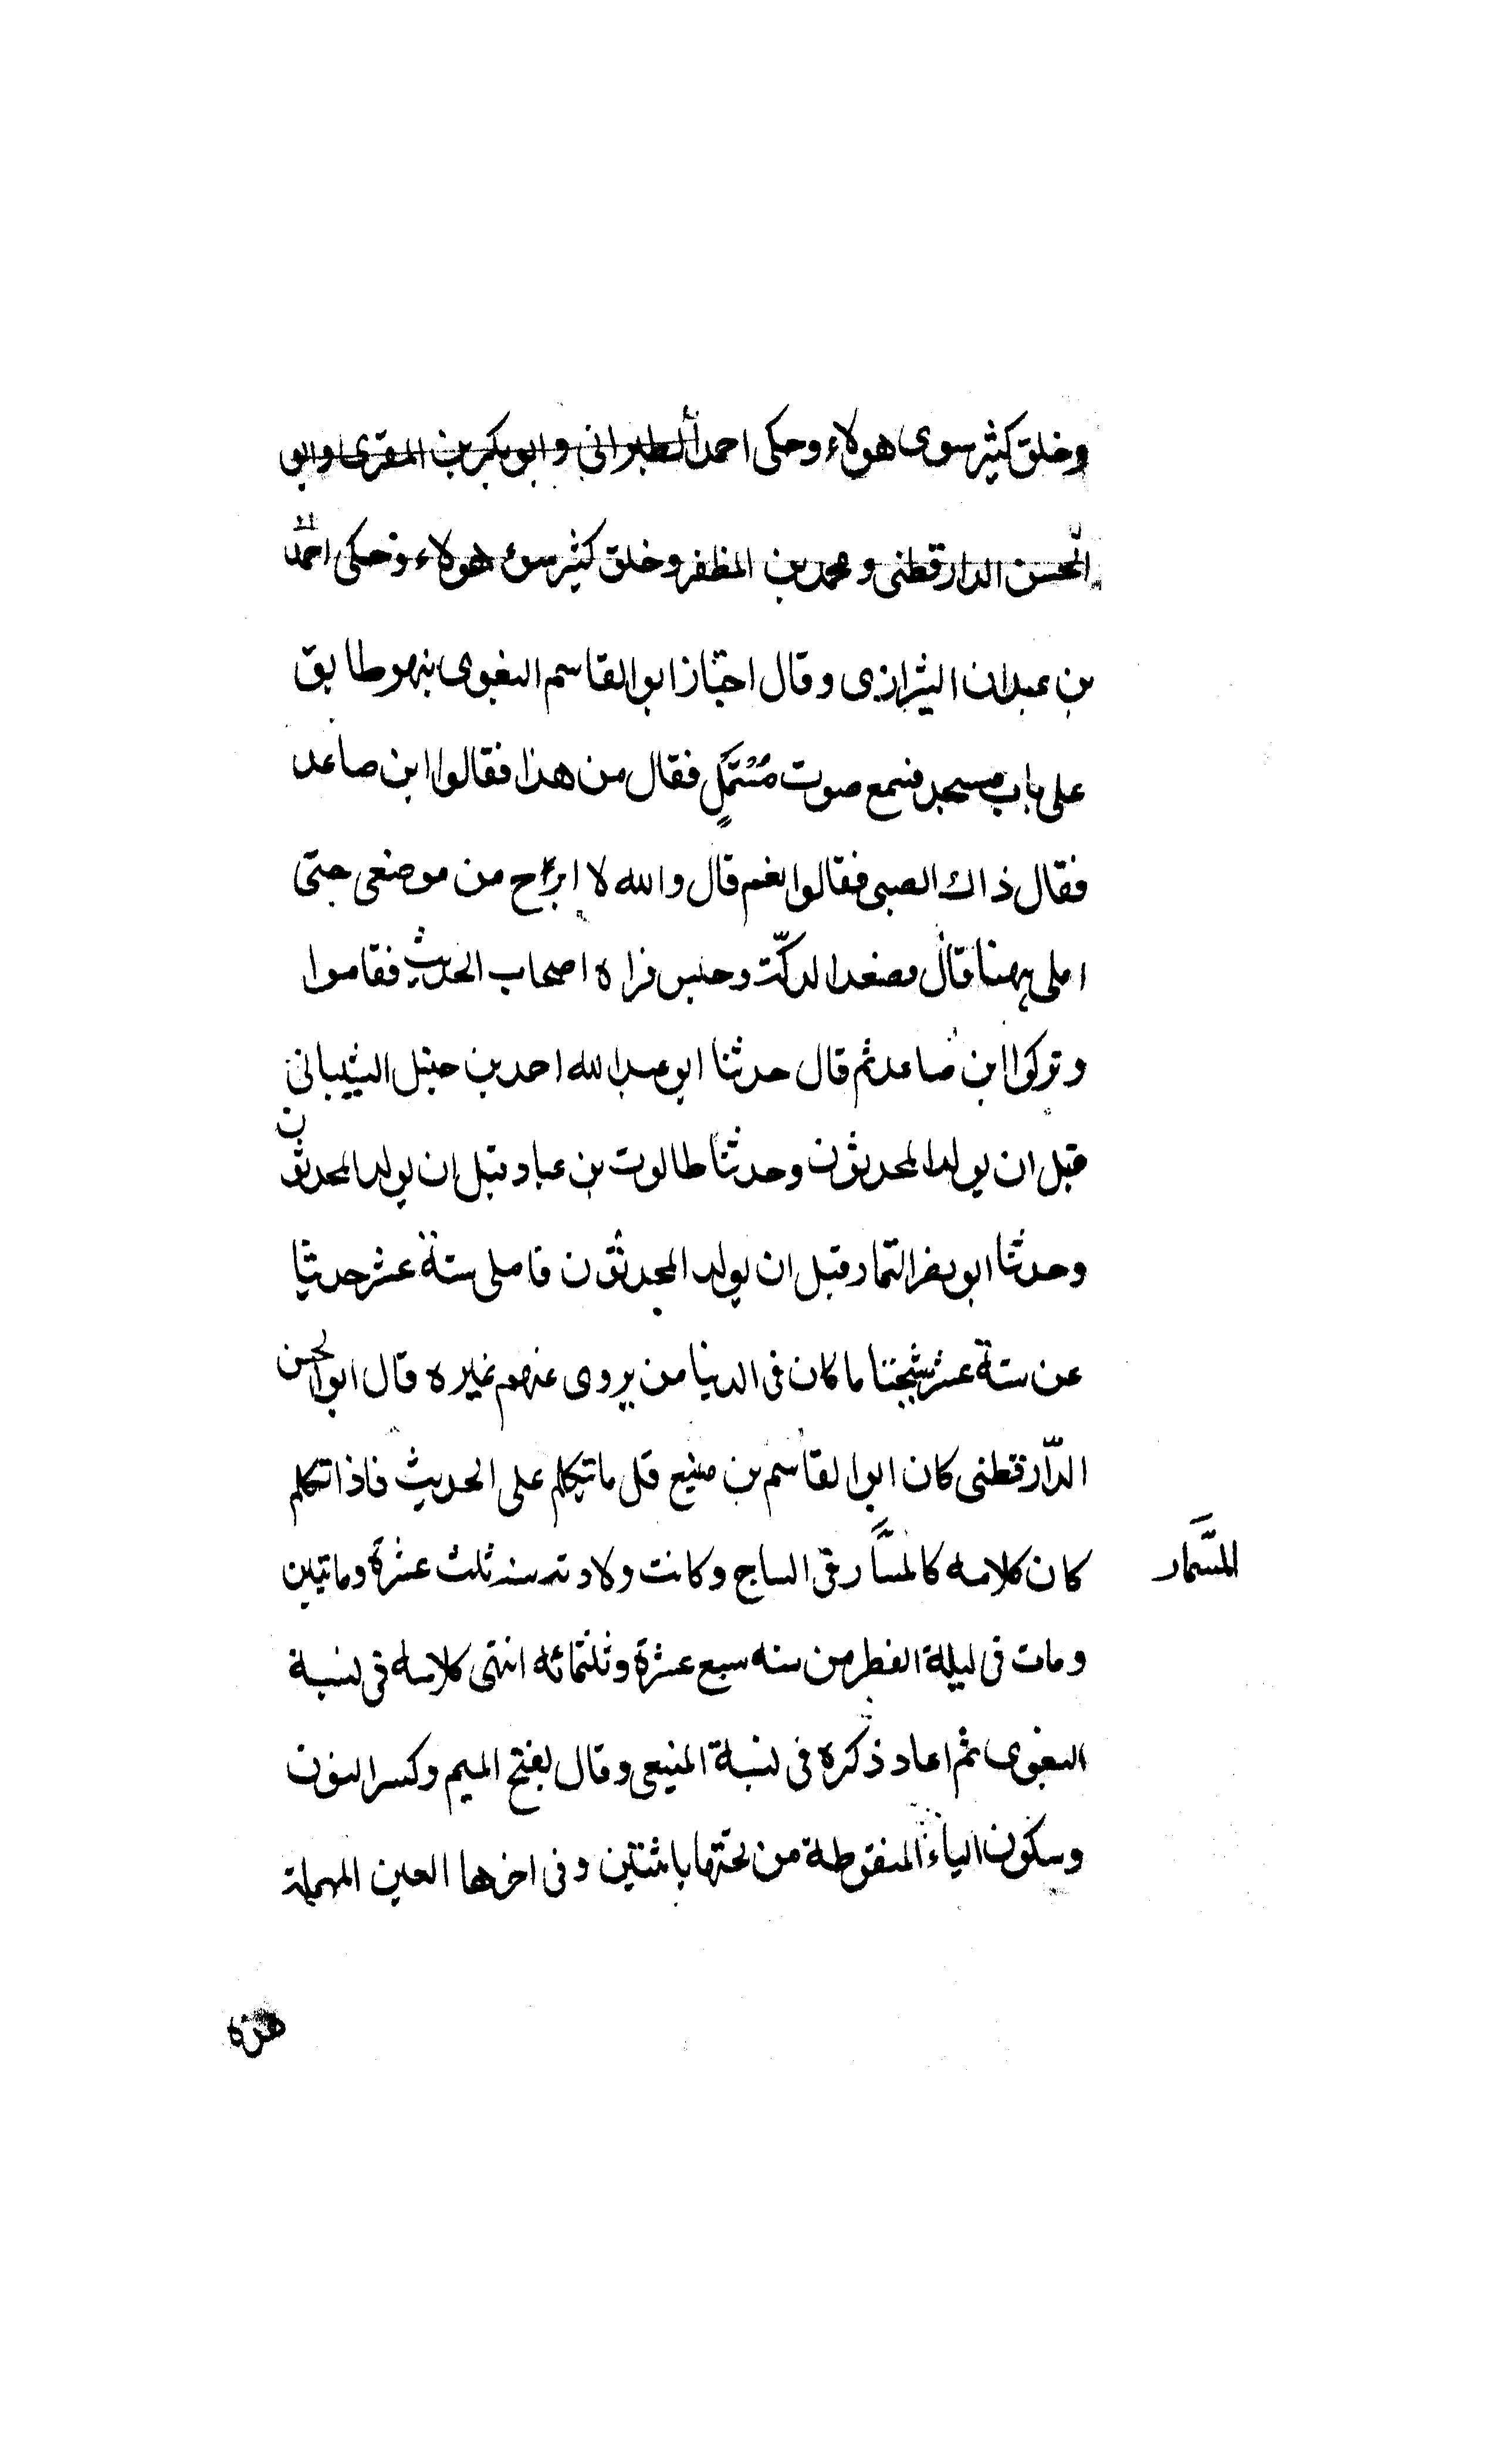 وخلق كثير سوى هولاء وحكى احمد الطبرانى وابو بكر بن المقرى وابو
الحسن الدارقطنى ومحمد بن المظفر وخلق كثير سوى هولاء وحكى احمد
بن عبدان الشيرازى وقال اجتاز ابو القاسم البغوى بنهر طابق
على باب مسجد فسمع صوت مُسْتَمْلٍ فقال من هذا فقالوا ابن صاعد
فقال ذاك الصبى فقالوا نعم قال والله لا ابرح من موضعى حتى
املى ههنا قال فصعد الدكّة وجلس فراه اصحاب الحديث فقاموا
وتركوا ابن صاعد ثم قال حدثنا ابو عبد الله احمد بن حنبل الشيبانى
قبل ان يولد المحدثون وحدثنا طالوت بن عباد قبل ان يولد المحدثون
وحدثنا ابو نصر التمار قبل ان يولد المحدثون فاملى ستة عشر حديثا
عن ستة عشر شيخنا ما كان فى الدنيا من يروى عنهم غيره قال ابو الحسن
الدّارقطنى كان ابو القاسم بن منيع قل ما تيكلم على الحديث فاذا تكلم
كان كلامه كالمسّار فى الساج وكانت ولادته سنه ثلث عشرة وماتين
المسّمار
ومات فى ليلة الفطر من سنه سبع عشرة وثلثمائه انتهى كلامه فى نسبة
البغوى ثم اعاد ذكره فى نسبة المنيعى وقال بفتح الميم وكسر النون
وسكون الياء المنقوطة من تحتها باثنتين وفى اخرها العين المهملة
هذه